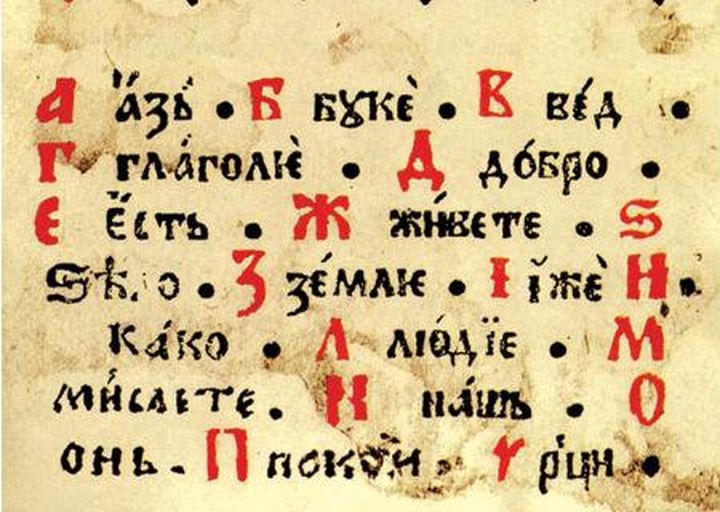 А а҆́зь • Б бꙋкѐ • В ве́д •
Г гла́голıѐ • Д до́бро •
Є є҆́сть • Ж жи́вєтє • Ѕ
ѕѣ. о • З зе́млıе • І і҆́жѐ И •
ка́ко • Л лю́дїе • М
ми́слєтє • Н на́шь • О
онь • П поко́и • Р рци •